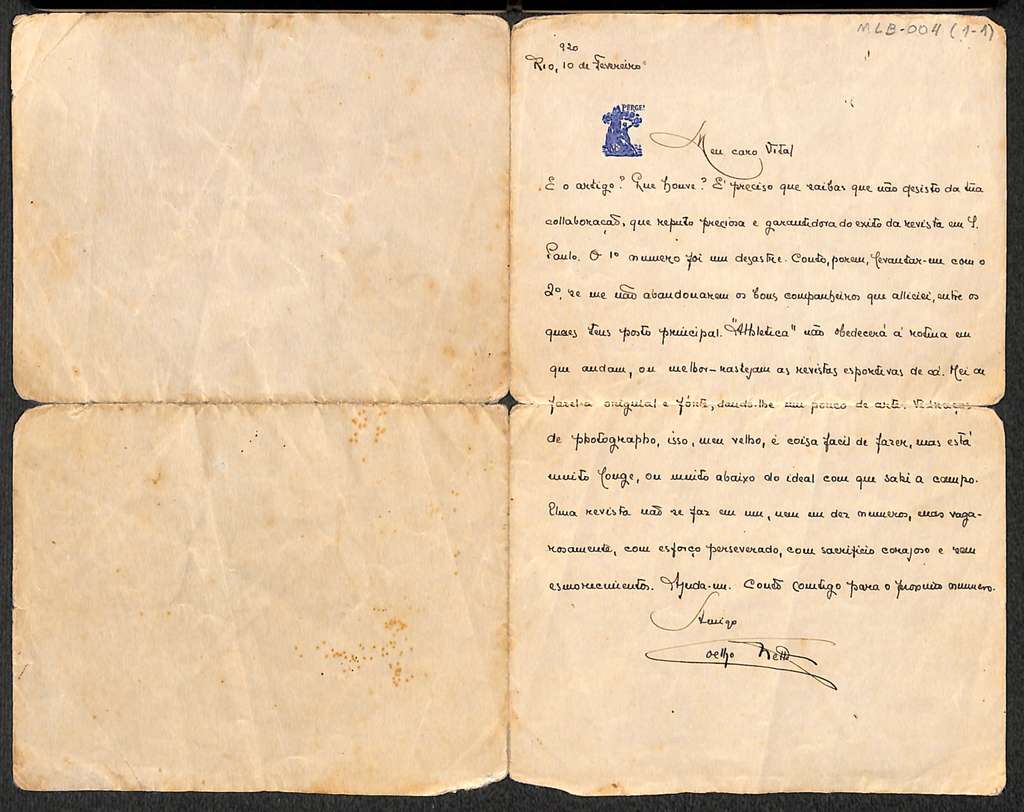 MLB-004 (1-1)
920
Rio, 10 de Fevereiro
PERGE!
Meu caro Vital
E o artigo? Que houve? E' preciso que saibas que não desisto da tua
collaboração, que reputo preciosa e garantidora do exito da revista em S.
Paulo. O 1º numero foi um desastre. Conto, porem, levantar-me com o
2º, se me não abandonarem os bons companheiros que alliciei, entre os
quaes tens posto principal. "Athletica" não obedecerá á rotina em
que andam, ou melhor-rastejam as revistas esportivas de cá. Hei de
fazel-a original e forte, dando-lhe um pouco de arte.
de photographo, isso, meu velho, é coisa facil de fazer, mas está
muito longe, ou muito abaixo do ideal com que sahi a campo.
Uma revista não se faz em um, nem em dez numeros, mas vaga-
rosamente, com esforço perseverado, com sacrificio corajoso e sem
esmorecimentos. Ajuda-me. Conto comtigo para o proximo numero.
Amigo
Coelho Netto